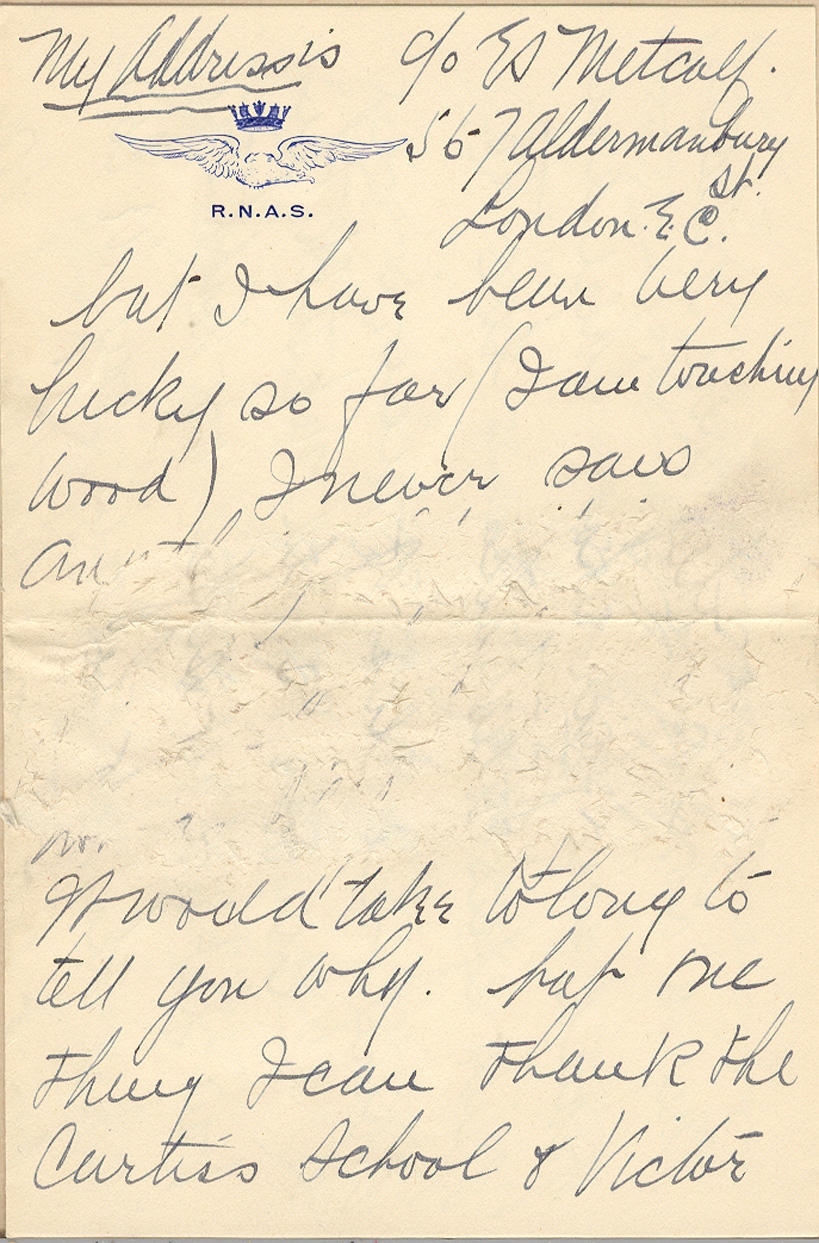 My Address is
c/o ES Metcalf.
56 7 Aldermanbury
St.
London. E. C.
R.N.A.S.
but I have been very
lucky so far (I am touching
wood) I never saw
It would take to long to
tell you why. but one
thing I can thank the
Curtiss School & Victor